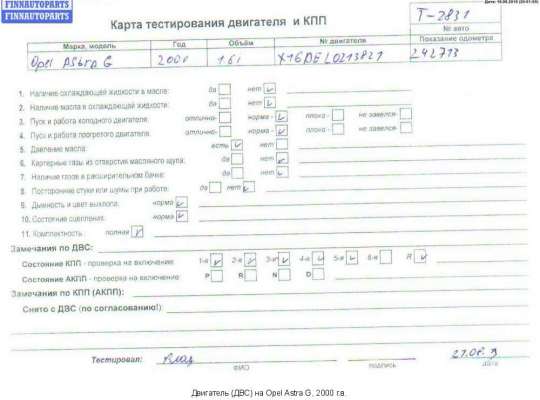 FINNAUTOPARTS
FINNAUTOPARTS
Карта тестирования двигателя и КПП
T-2831
№ авто
Марка, модель Год Объём № двигателя Показание одометра
Opel Astra G 2000 1.6i 242713
1. Наличие охлаждающей жидкости в масле: да нет
2. Наличие масла в охлаждающей жидкости: да нет
3. Пуск и работа холодного двигателя: отлично- норма- плохо- не завелся-
4. Пуск и работа прогретого двигателя: отлично- норма- плохо- не завелся-
5. Давление масла: есть нет
6. Картерные газы из отверстия масляного щупа: да нет
7. Наличие газов в расширительном бачке: да нет
8. Посторонние стуки или шумы при работе: да нет
9. Дымность и цвет выхлопа: норма
10. Состояние сцепления: норма
11. Комплектность: полная
Замечания по ДВС:
Состояние КПП - проверка на включение: 1-я 2-я 3-я 4-я 5-я 6-я R
Состояние АКПП - проверка на включение: P R N D
Замечания по КПП (АКПП):
Снято с ДВС (по согласованию!):
Тестировал: Влад
ФИО подпись дата
Двигатель (ДВС) на Opel Astra G, 2000 г.в.